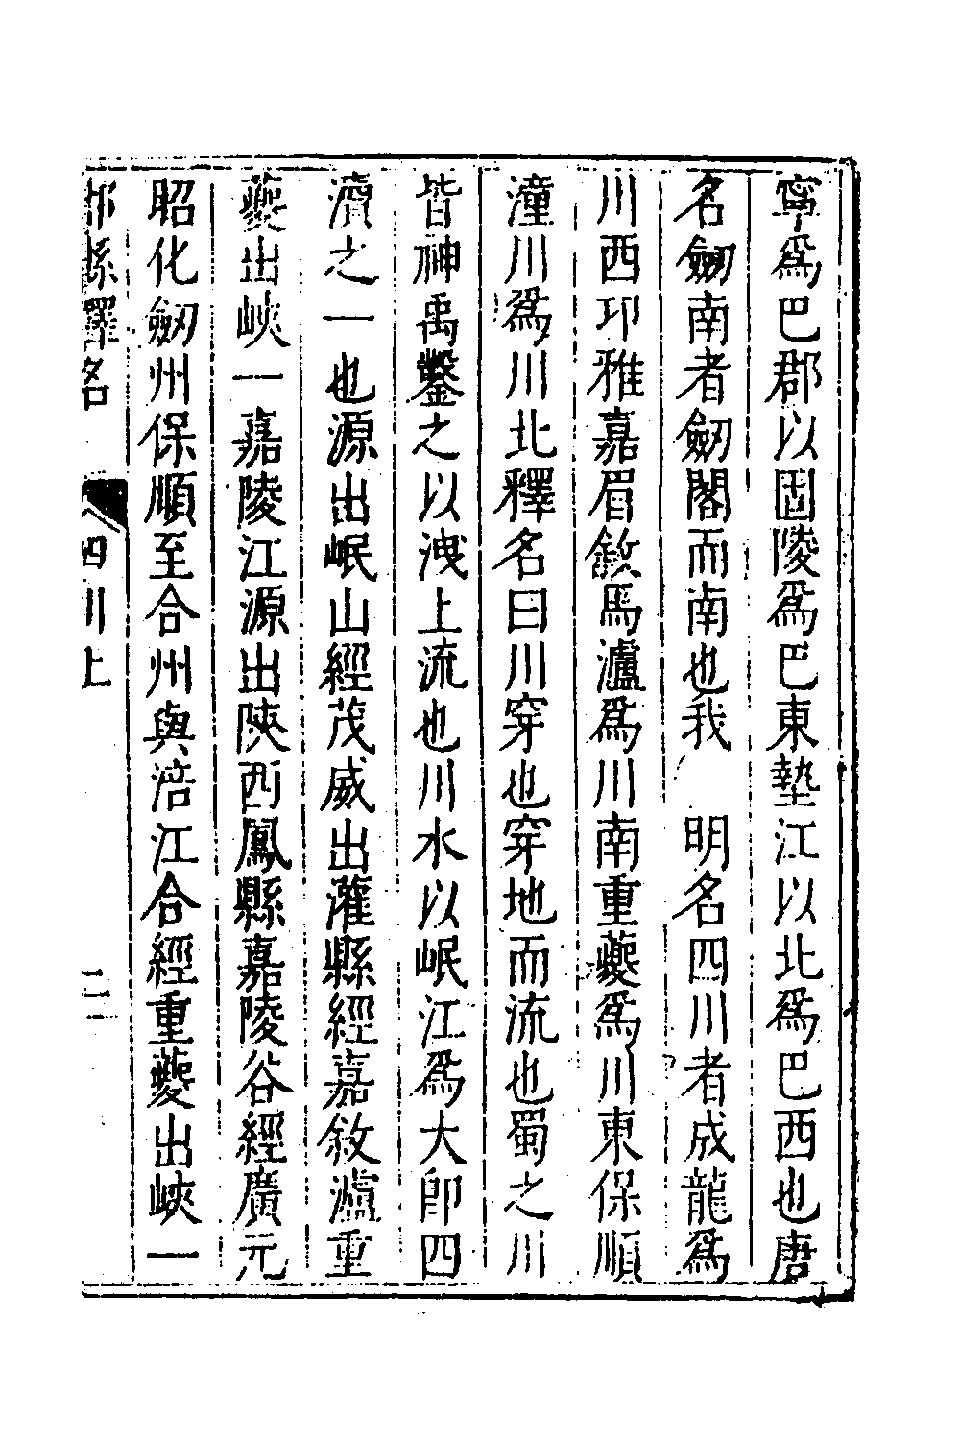 寧爲巴郡以固陵爲巴東墊江以北爲巴西也唐
名劒南者劒閣而南也我　明名四川者成龍爲
川西邛雅嘉眉敘馬瀘爲川南重夔爲川東保順
潼川爲川北釋名曰川穿也穿地而流也蜀之川
皆神禹鑿之以洩上流也川水以岷江爲大卽四
瀆之一也源出岷山經茂威出灌縣經嘉敘瀘重
夔出峽一嘉陵江源出陝西鳳縣嘉陵谷經廣元
昭化劒州保順至合州與涪江合經重夔出峽一
郡縣釋名　四川上　二